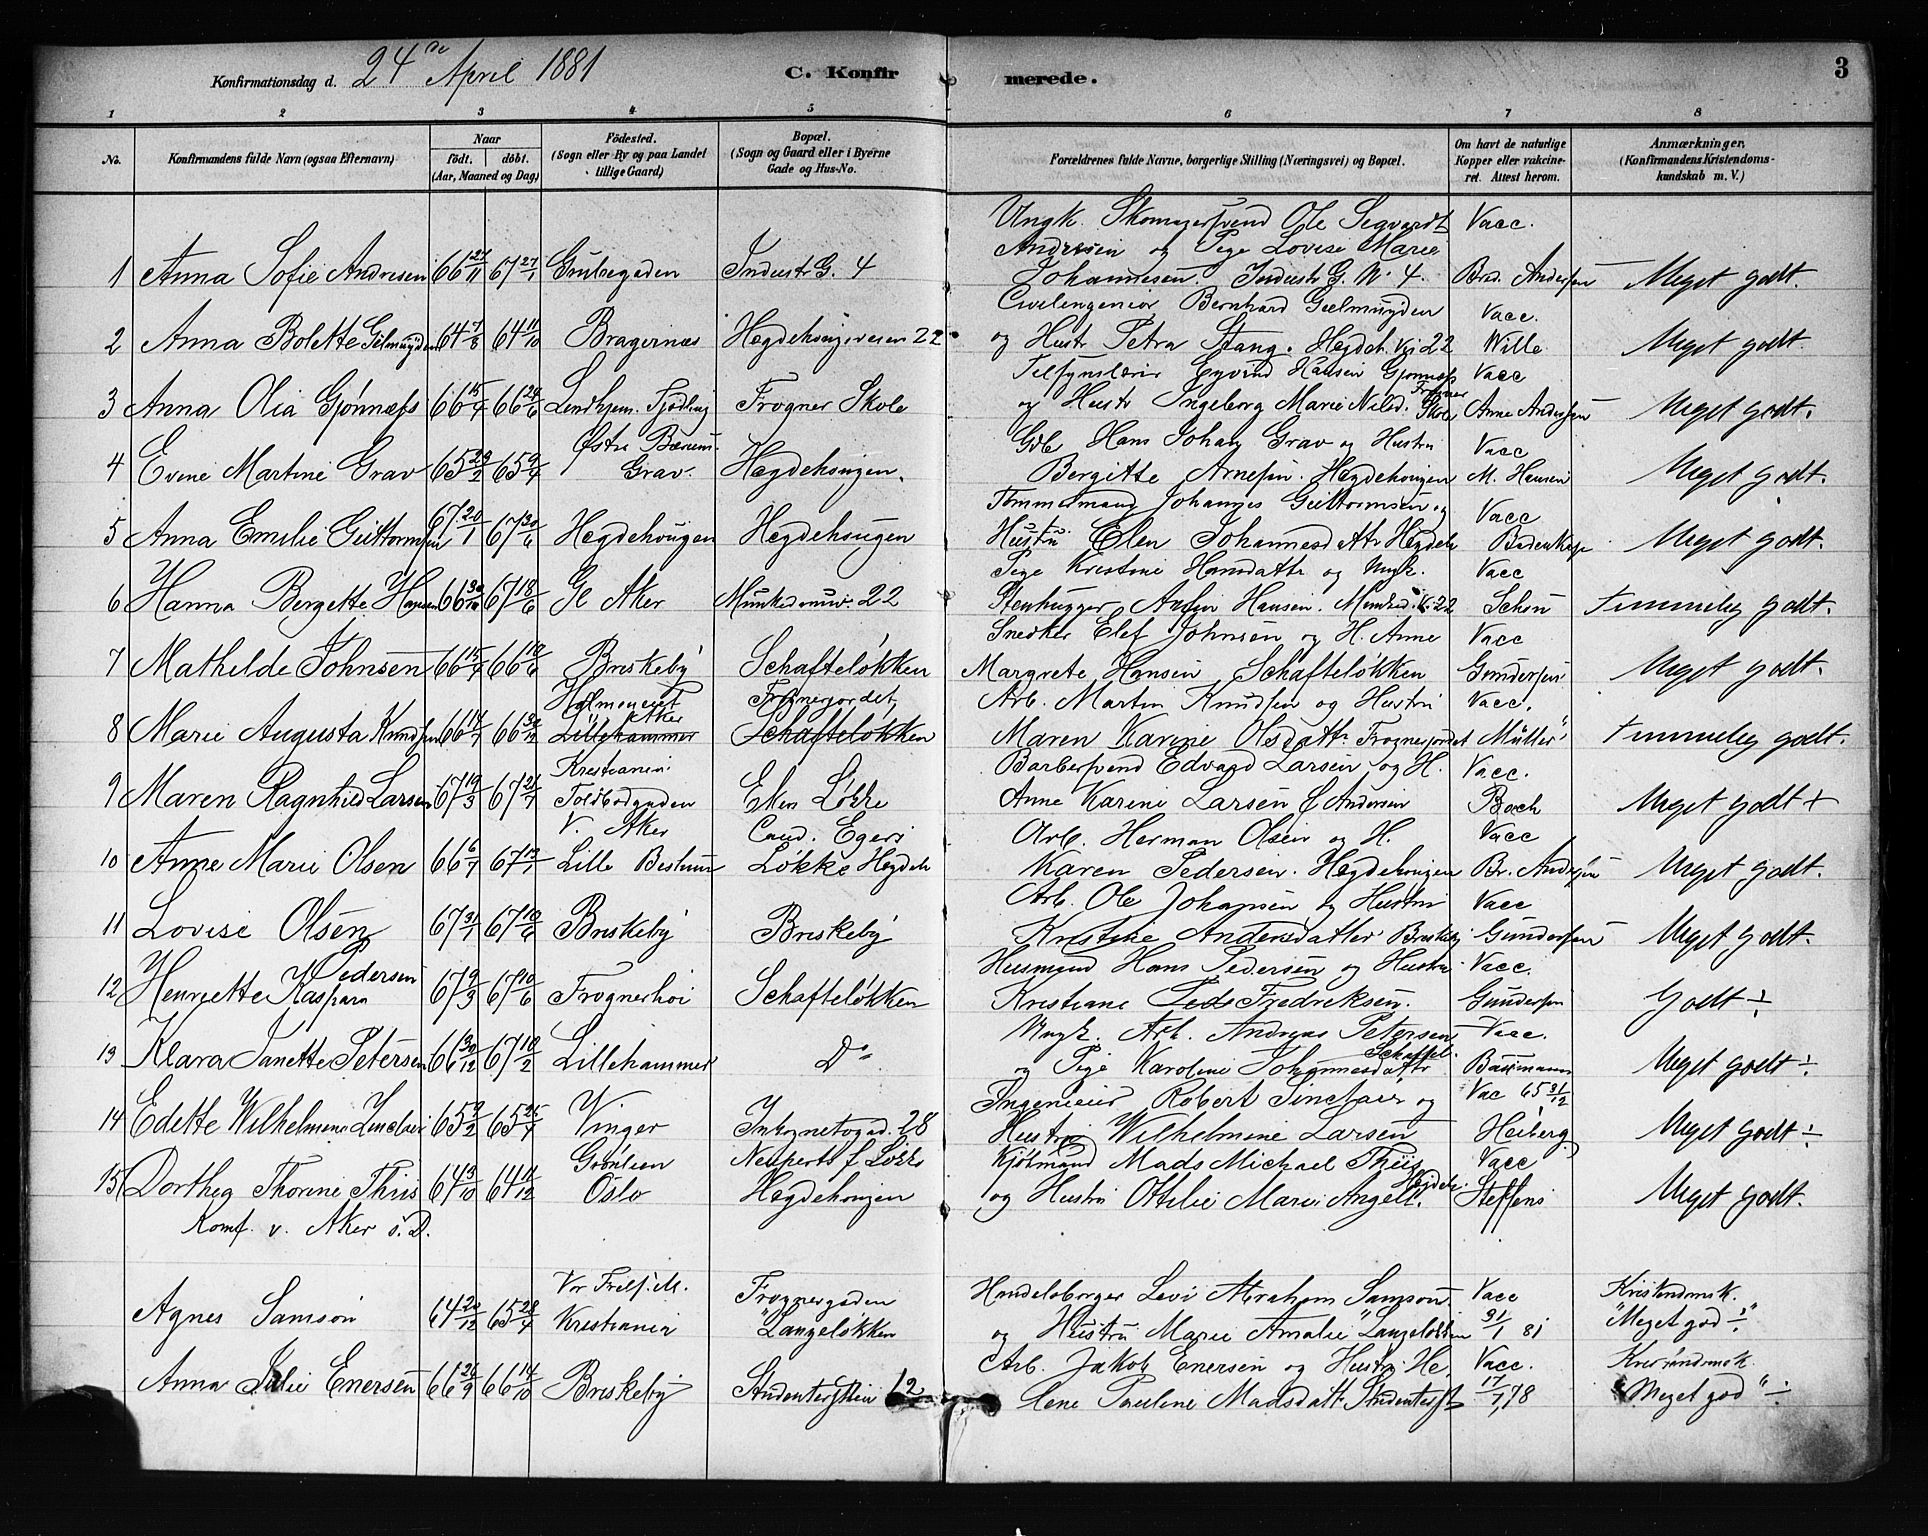 Konfirmationsdag d. 24de April 1881 C. Konfirmerede. 3
1 2 3 4 5 6 7 8
No. Konfirmandens fulde Navn (ogsaa Efternavn) Naar født. døbt. (Aar, Maaned og Dag) Fødested. (Sogn eller By og paa Landet tillige Gaard) Bopæl. (Sogn og Gaard eller i Byerne Gade og Hus-No. Forældrenes fulde Navne, borgerlige Stilling (Næringsvei) og Bopæl. Om havt de naturlige Kopper eller vakcineret. Attest herom. Anmærkninger, (Konfirmandens Kristendomskundskab m. V.)
Ungk. Skomagersvend Ole Segvardt Vacc.
Andresen og Pige Lovise Marie
1 Anna Sofie Andresen 66 27/11 67 27/1 Industr G. 4 Johannesen. Industr G. N. 4. Bred. Andersen Meget godt.
Civilengeniør Bernhard Gielmuyden Vacc.
2 Anna Bolette Gielmuyden 64 7/8 64 11/10 Bragernæs Hegdehougsveien 22 og Hustr Petra Stang. Hegdeh. Vei 22 Wille Meget godt.
Tilsynslærer Eyvind Hansen Gjønnæss Vacc
3 Anna Olia Gjønnæss 66 15/4 66 24/6 Frogner Skole og Hustr Ingeborg Marie Nild. Frogner Skole Anne Andersen Meget godt.
Østre Bærum Gdb Hans Johan Grav og Hustru Vacc
4 Evine Martine Grav 65 23/2 65 9/4 Grav. Hægdehougen. Bergitte Arnesen. Hegdehougen M. Hansen Meget godt.
Tømmermand Johannes Guttormsen og Vacc
5 Anna Emilie Guttormsen 67 20/1 67 30/6 Hegdehougen Hegdehougen Hustru Elen Johannesdattr Hegdeh Meget godt.
Pige Kristine Hansdattr og Ungk. Vacc
6 Hanna Bergette Hansen 66 30/10 67 18/6 Gl Aker Munkedamsv. 22 Stenhugger Anfin Hansen. Munked. V. 22 Schøn temmelig godt.
Snedker Elef Johnsen og H. Anne Vacc
7 Mathilde Johnsen 66 15/4 66 10/6 Briskeby Schafteløkken Margrete Hansen Schafteløkken Gundersen Meget godt.
Holmejeiet Aker Frognerjordet Arb. Martin Knudsen og Hustru Vacc.
8 Marie Augusta Knudsen 66 14/7 66 30/12 Lillehammer Schafteløkken Maren Karine Olsdattr Frognerjordet Müller temmelig godt.
Kristiania Barbersvend Edvard Larsen og H. Vacc.
9 Maren Ragnhild Larsen 67 19/3 67 21/7 Toldbodgaden Eken Løkke Anne Karine Larsen f Andersen Boch Meget godt +
V. Aker Cand. Egers Arb. Herman Olsen og H. Vacc
10 Anne Marie Olsen 66 6/7 67 13/1 Lille Bestum Løkke Hegdeh Karen Pedersen. Hegdehougen Br. Andersen Meget godt.
Arb. Ole Johansen og Hustru Vacc
11 Lovise Olsen 67 31/1 67 10/6 Briskeby Briskeby Kristine Andersdatter Briskeby Gundersen Meget godt.
Pedersen Husmand Hans Pedersen og Hustru Vacc.
12 Henriette Kaspara 67 9/3 67 10/6 Frognerhøi Schafteløkken Kristiane Fredriksen. Gundersen Godt ÷
Ungk. Arb. Andreas Petersen Vacc.
13 Klara Janette Petersen 66 30/12 67 10/2 Lillehammer Do og Pige Karoline Johannesdattr Schaftel. Meget godt ÷
Ingeniør Robert Sinclair og Vac 65 31/12
14 Edette Wilhelmine Sinclair 65 9/2 65 25/7 Vinger Inkognetogad. 28 Hustru Wilhelmine Larsen Heiberg Meget godt ÷
Grønlien Neuperts Løkke Kjøbmand Mads Michael Thiis Vacc
15 Dorthea Thorine Thiis 64 3/10 64 11/12 Oslo Hegdehougen og Hustru Ottilie Marie Angell. Hegdeh. Steffens Meget godt.
Komf. v. Aker s. D.
Vor Frels. M. Frognergaden Handelsborger Levi Abraham Samson Vacc Kristendomsk.
Agnes Samson 64 20/12 65 28/4 Kristiania "Langeløkken og Hustru Marie Amalie "Langeløkken 31/1 81 "Meget god ÷"
Arb. Jakob Enersen og Hustr. He. Vacc. Kristendomsk.
Anna Julie Enersen 66 26/9 66 14/10 Briskeby 12 lene Pauline Madsdattr Studenterst 17/1 78 "Meget god" ÷